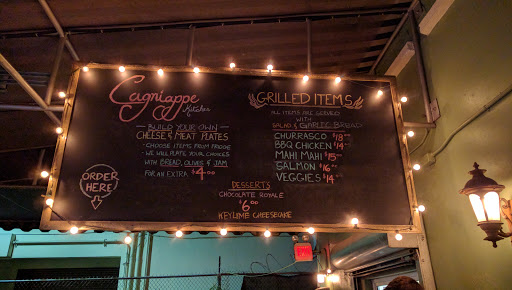 Lagniappe
Kitchen
BUILD YOUR OWN
CHEESE & MEAT PLATES
- CHOOSE ITEMS FROM FRIDGE
- WE WILL PLATE YOUR CHOICES
WITH BREAD, OLIVES & JAM
FOR AN EXTRA $4.00
ORDER
HERE
GRILLED ITEMS
ALL ITEMS ARE SERVED
WITH
SALAD & GARLIC BREAD
CHURRASCO $13
BBQ CHICKEN $14
MAHI MAHI $15
SALMON $16
VEGGIES $14
DESSERTS
CHOCOLATE ROYALE
$6.00
KEYLYME CHEESECAKE
EXIT